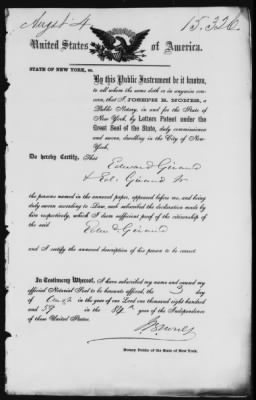 August 4
15.326.
United States of America.
STATE OF NEW YORK, ss.
By this Public Instrument be it known,
to all whom the same doth or in anywise con-
cern, that I, JOSEPH B. NONES, a
Public Notary, in and for the State of
New York, by Letters Patent under the
Great Seal of the State, duly commissioned
and sworn, dwelling in the City of New
York.
Do hereby Certify, That
Edward Giraud
& Ed. Giraud Jr
the persons named in the annexed paper, appeared before me, and being
duly sworn according to Law, each subscribed the declaration made by
him respectively, which I deem sufficient proof of the citizenship of
the said
Giraud
and I certify the annexed description of his person to be correct.
In Testimony Whereof, I have subscribed my name and caused my
official Notarial Seal to be hereunto affixed, the 3 day
of in the year of our Lord one thousand eight hundred
and 59 in the 84th year of the Independence
of these United States.
JB Nones
Notary Public of the State of New York.